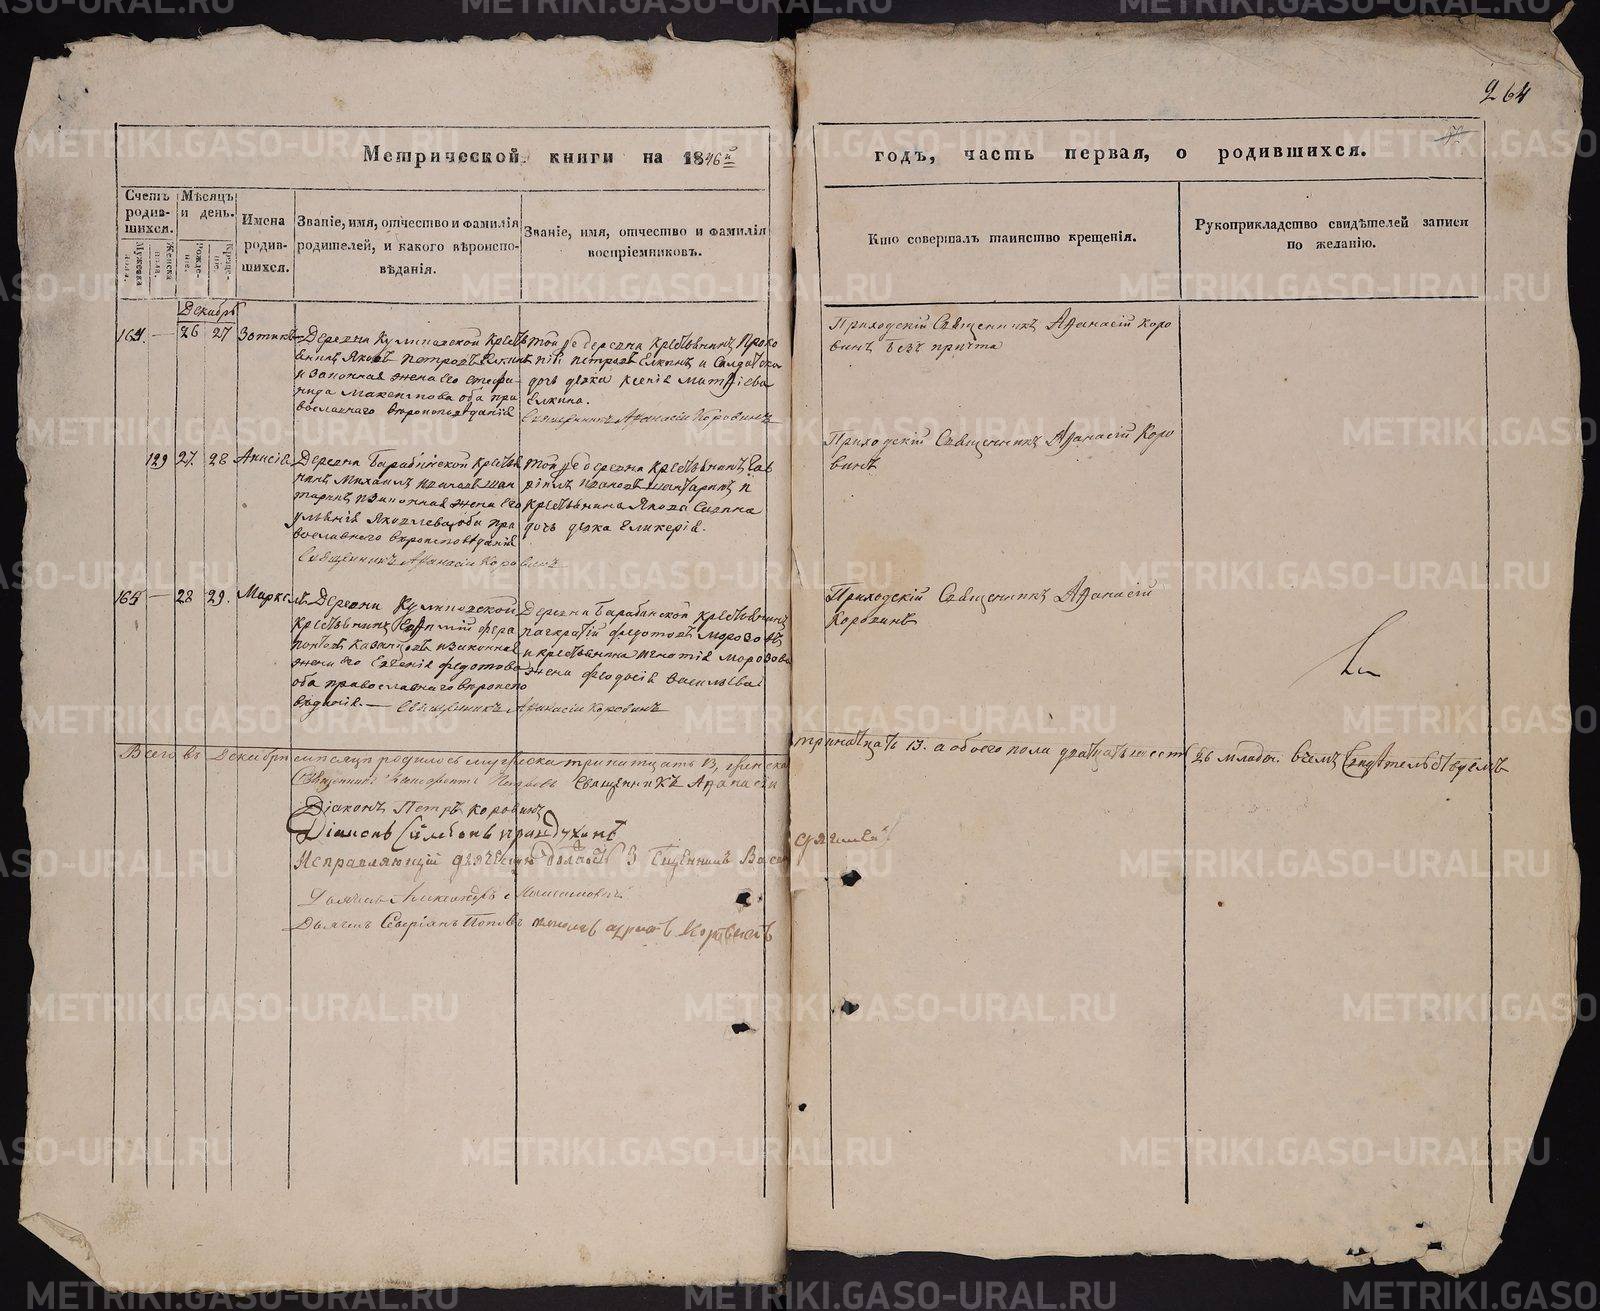 264
Метрической книги на 1846й
годъ, часть первая, о родившихся.
Счетъ родив-шихся.
Мужеска пола.
Женска пола.
Мѣсяцъ и день.
Рожде-ніе.
Креще-ніе.
Имена родив-шихся.
Званіе, имя, отчество и фамилія
родителей, и какого вѣроиспо-
вѣданія.
Званіе, имя, отчество и фамилія
воспріемниковъ.
Кто совершалъ таинство крещенія.
Рукоприкладство свидѣтелей записи
по желанію.
Декабрь
164. — 26 27 Зотикъ
Деревни Куликовской Кресть
янинъ Яковъ Петровъ Елкинъ
и законная жена его Стефа-
нида Максимова оба пра
вославнаго вѣроисповѣданія
Той же деревни крестьянинъ Проко
пій Петровъ Елкинъ и Солдатска
дочь дѣвка Ксенія Матфіева
Елкина.
Священникъ Афанасій Коровинъ
Приходскій Священникъ Афанасій Коро
винъ безъ причта
129 27. 28 Анисія
Деревни Барабинской Крестья
нинъ Михаилъ Ивановъ Шан
таринъ и законная жена его
Ульянія Яковлева, оба пра
вославнаго вѣроисповѣданія
Священникъ Афанасій Коровинъ
Той же деревни крестьянинъ Гав
ріилъ Ивановъ Шантаринъ и
крестьянина Якова
дочь дѣвка Гликерія.
Приходскій Священникъ Афанасій Коро
винъ
165 — 28 29. Маркелъ
Деревни Куликовской
Крестьянинъ Ефимій Фера
понтовъ Казанцовъ и законная
жена его Евгенія Федотова
оба православнаго вѣроиспо
вѣданія. — Священникъ Афанасій Коровинъ
Деревни Барабинской крестьянинъ
Панкратій Федотовъ Морозовъ
и крестьянина Игнатія Морозова
жена Феодосія Васильева
Приходскій Священникъ Афанасій
Коровинъ
Всего въ Декабрѣ мѣсяцѣ родилось мужеска тринатцать 13, женска
тринатцать 13. а обоего пола дватцать шесть 26 младен. въ чемъ Свидѣтельствуемъ
Священникъ Священникъ Афанасій
Діаконъ Петръ Коровинъ
Діаконъ Сѵмеонъ
Исправляющій должность
Дьячекъ Александръ
Дьячекъ Северіанъ Поповъ Коровинъ